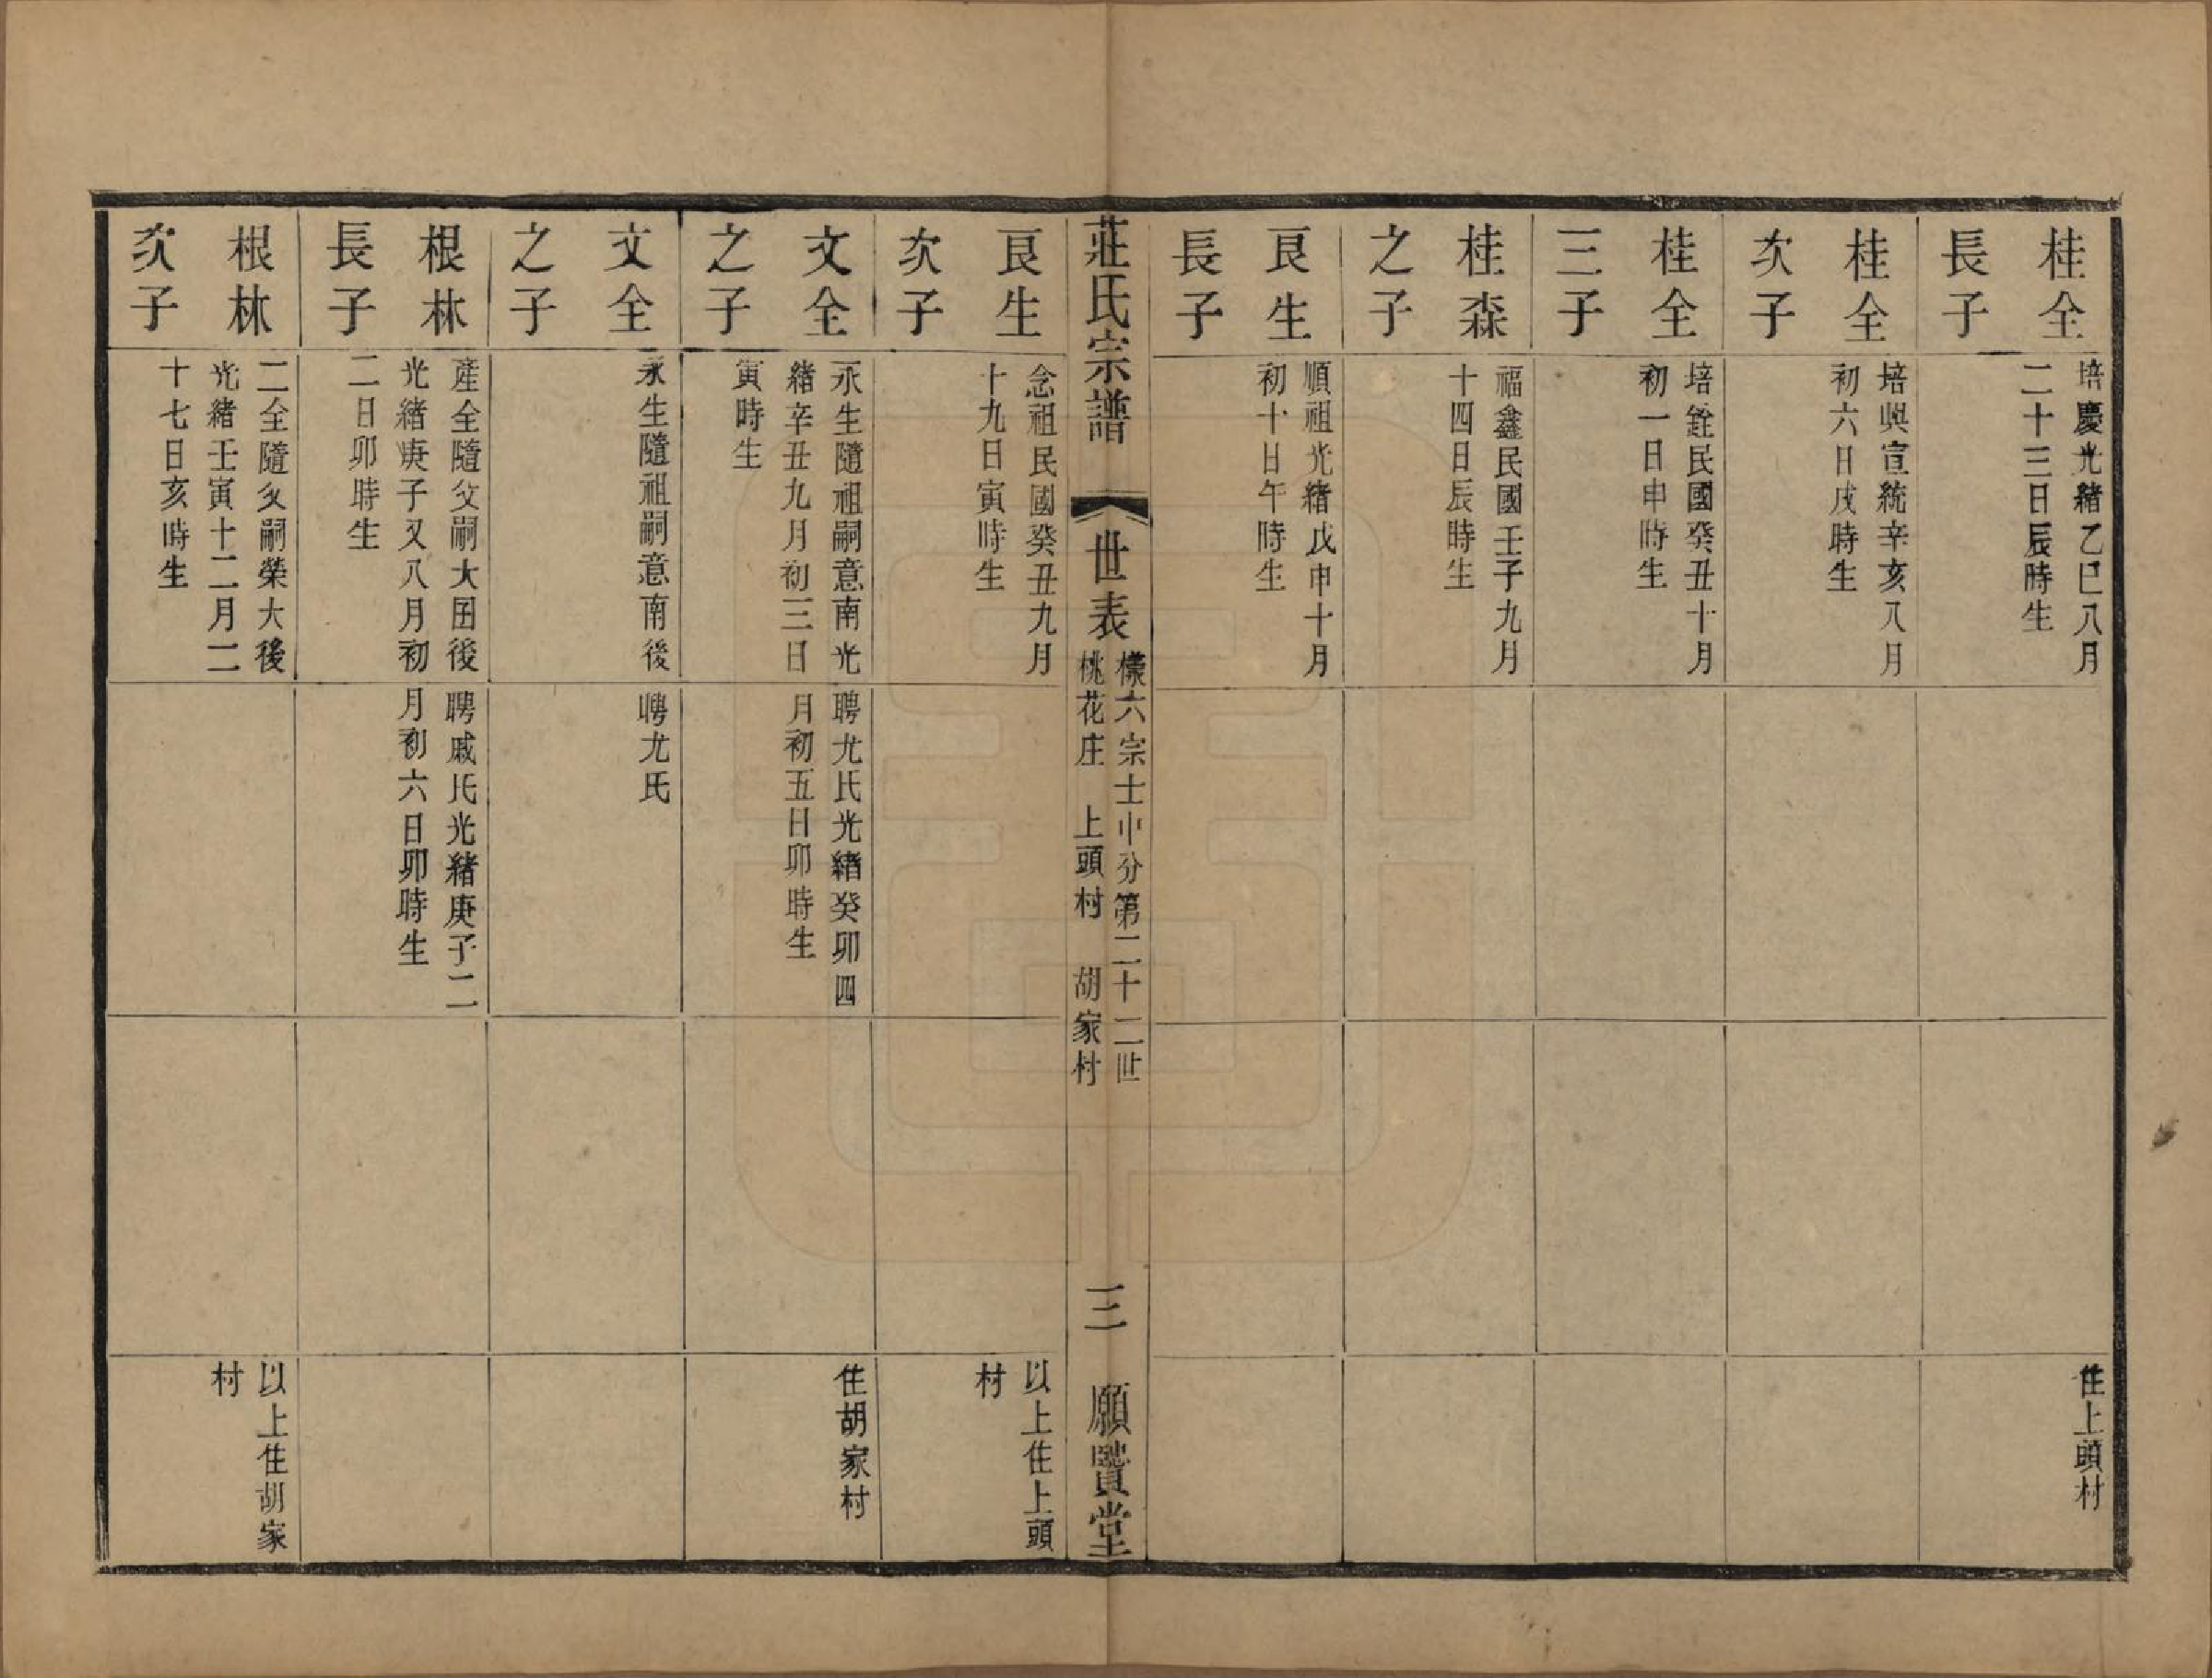 桂全
長子
培慶光緒乙巳八月
二十三日辰時生
住上頭村
桂全
次子
培興宣統辛亥八月
初六日戌時生
桂全
三子
培銓民國癸丑十月
初一日申時生
桂森
之子
福鑫民國壬子九月
十四日辰時生
良生
長子
順祖光緒戊申十月
初十日午時生
莊氏宗譜
世表
樣六宗士中分第二十二世
桃花庄 上頭村 胡家村
三
願賢堂
良生
次子
念祖民國癸丑九月
十九日寅時生
以上住上頭
村
文全
之子
永生隨祖嗣意南光
緒辛丑九月初三日
寅時生
聘尤氏光緒癸卯四
月初五日卯時生
住胡家村
文全
之子
永生隨祖嗣意南後
聘尤氏
根林
長子
產全隨父嗣大囝後
光緒庚子又八月初
二日卯時生
聘戚氏光緒庚子二
月初六日卯時生
根林
次子
二全隨父嗣榮大後
光緒壬寅十二月二
十七日亥時生
以上住胡家
村